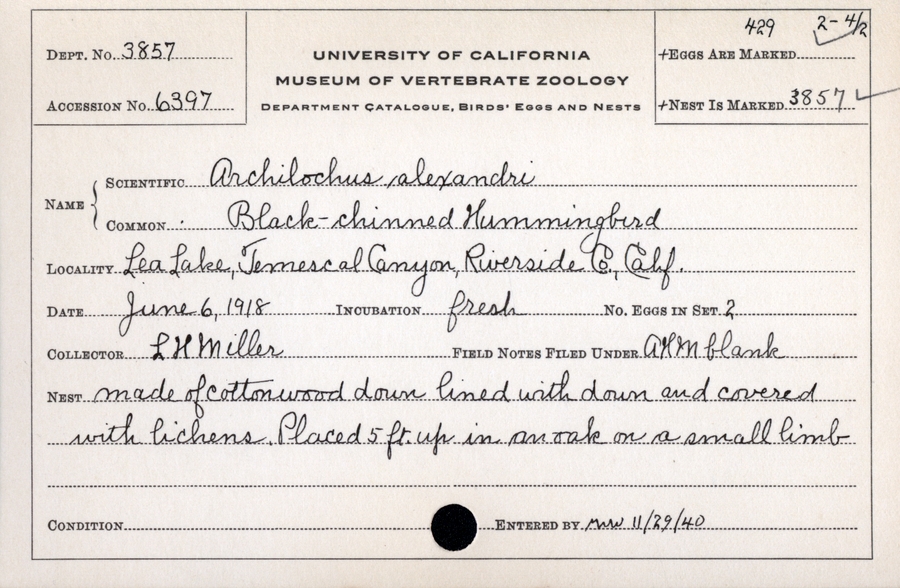 429 2-4/2
DEPT. NO. 3857
UNIVERSITY OF CALIFORNIA
+EGGS ARE MARKED
MUSEUM OF VERTEBRATE ZOOLOGY
ACCESSION NO. 6397
DEPARTMENT CATALOGUE, BIRDS' EGGS AND NESTS
+NEST IS MARKED 3857
NAME
SCIENTIFIC Archilochus alexandri
COMMON Black-chinned Hummingbird
LOCALITY Lea Lake, Temescal Canyon, Riverside Co., Calif.
DATE June 6, 1918 INCUBATION fresh NO. EGGS IN SET 2
COLLECTOR L H Miller FIELD NOTES FILED UNDER AHM blank
NEST made of cottonwood down lined with down and covered
with lichens. Placed 5 ft. up in an oak on a small limb
CONDITION ENTERED BY 11/29/40